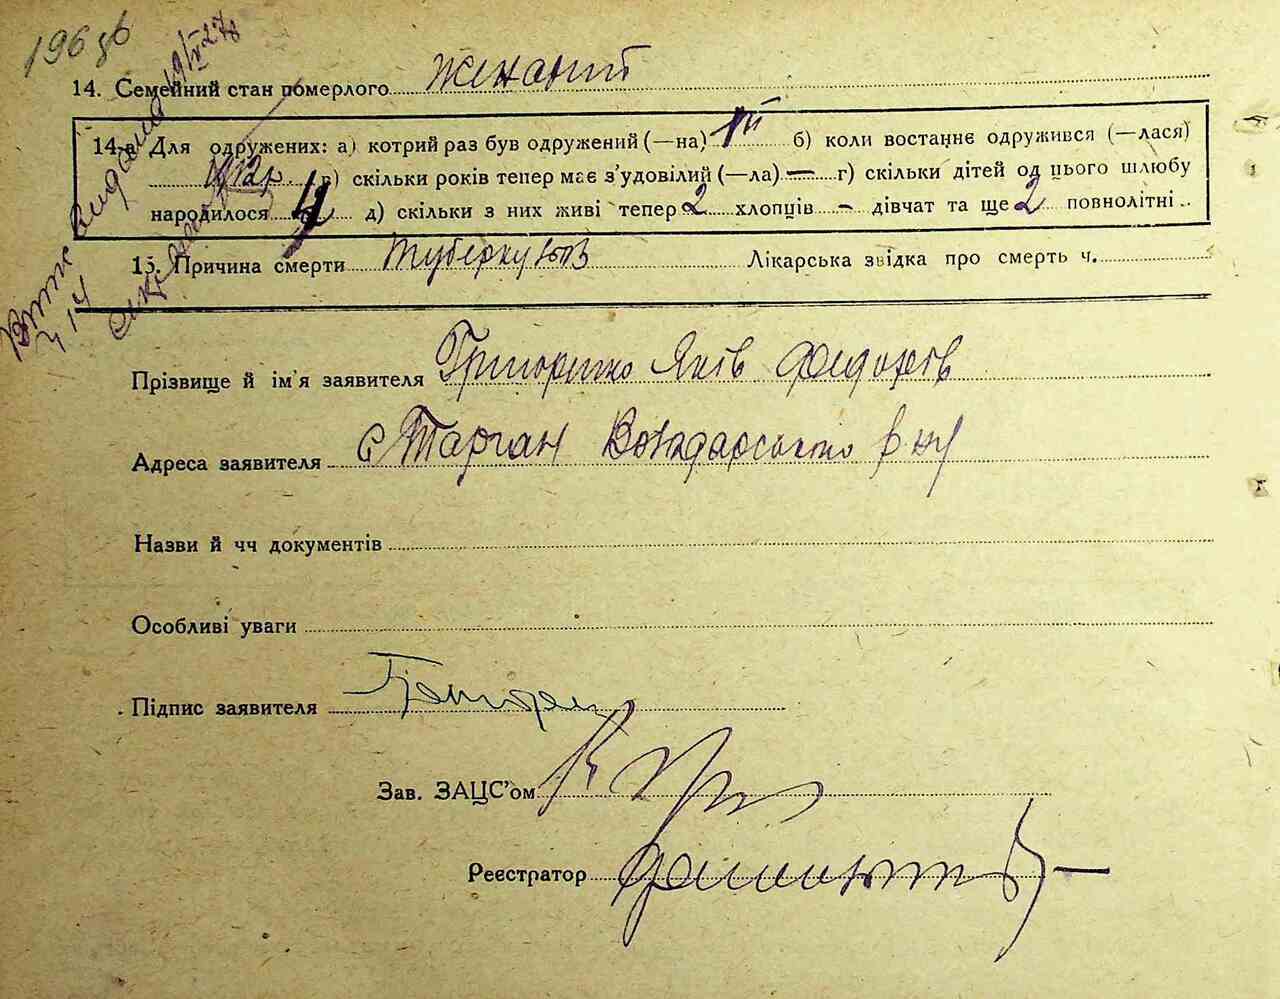 196 зв
14. Семейний стан померлого Женатий
14-а Для одружених: а) котрий раз був одружений (—на) б) коли востаннє одружився (—лася)
в) скільки років тепер має з'удовілий (—ла) — г) скільки дітей од цього шлюбу
народилося 4 д) скільки з них живі тепер 2 хлопців - дівчат та ще 2 повнолітні..
15. Причина смерти Туберкульоз Лікарська звідка про смерть ч.
Прізвище й ім'я заявителя Григоренко Яків Федотів
Адреса заявителя с Тарган Володарського р-ну
Назви й чч документів
Особливі уваги
Підпис заявителя
Зав. ЗАЦС'ом
Реєстратор